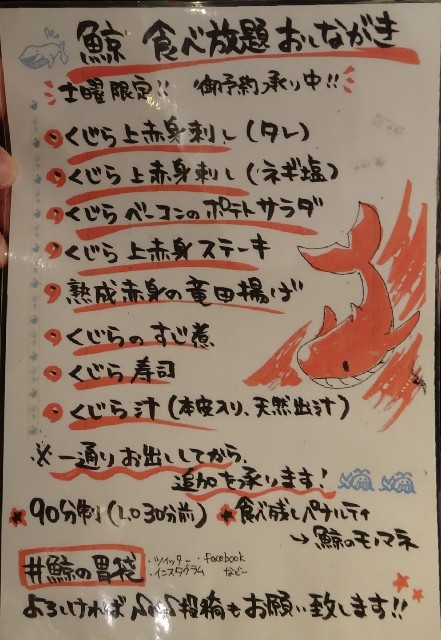 鯨 食べ放題 おしながき
土曜限定!! 御予約承り中!!
くじら上赤身刺し(タレ)
くじら上赤身刺し(ネギ塩)
くじらベーコンのポテトサラダ
くじら上赤身ステーキ
熟成赤身の竜田揚げ
くじらのすじ煮
くじら寿司
くじら汁(本皮入り、天然出汁)
※一通りお出ししてから、
追加を承ります!
★90分制(L.O 30分前) ★食べ残しペナルティ
→鯨のモノマネ
#鯨の胃袋 ・ツイッター ・facebook
・インスタグラム など…
よろしければSNS投稿もお願い致します!!